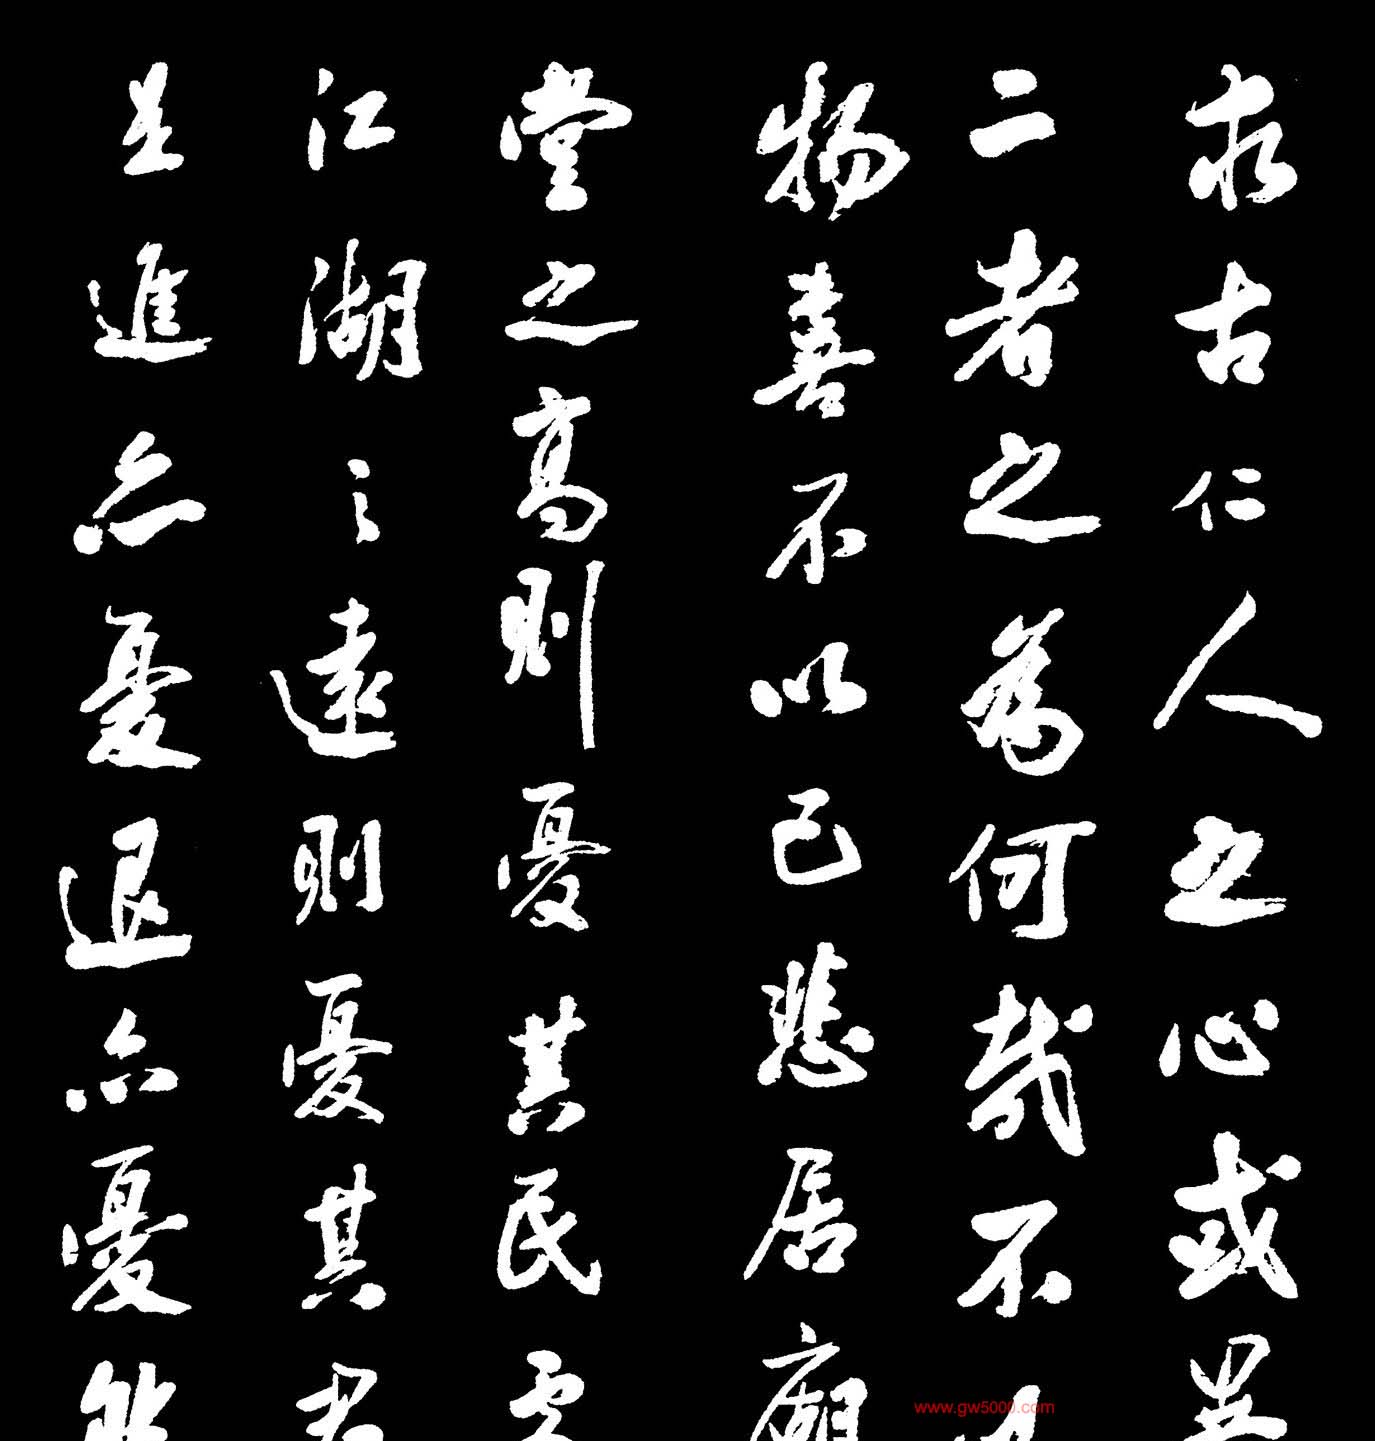 求古仁人之心或異
二者之為何哉不
物喜不以己悲居廟
堂之高則憂其民處
江湖之遠則憂其君
是進亦憂退亦憂然
www.gw5000.com